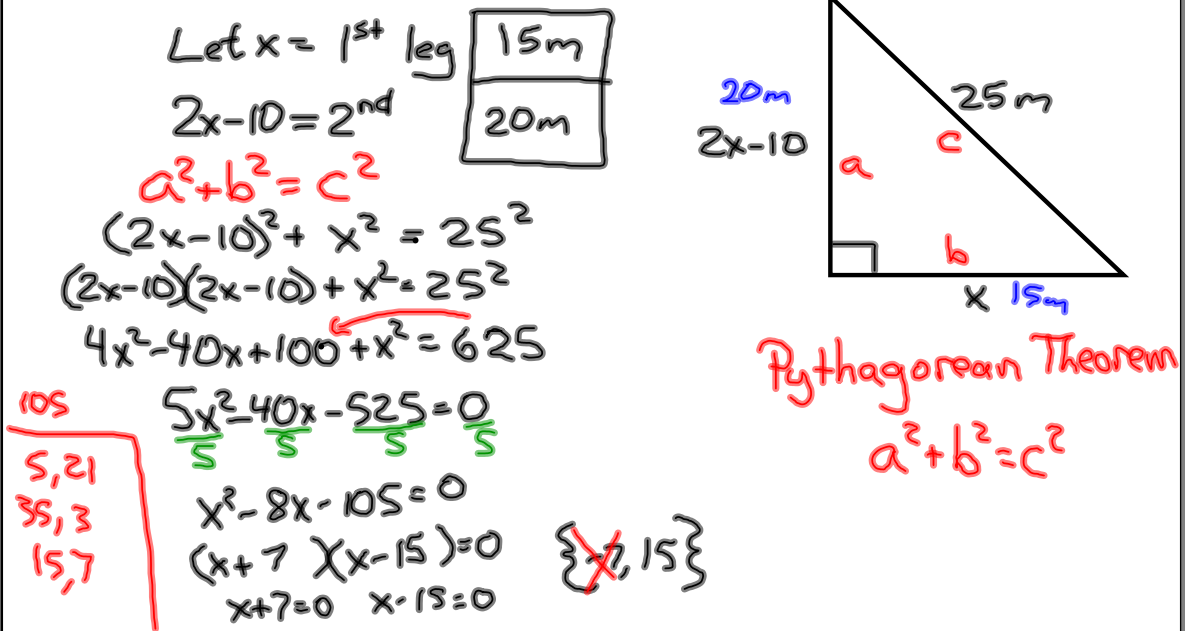 Let x = 1st leg
15m
2x-10 = 2nd
20m
a²+b² = c²
(2x-10)² + x² = 25²
(2x-10)(2x-10) + x² = 25²
4x²-40x+100+x² = 625
5x²-40x-525=0
5 5 5 5
x²-8x-105=0
(x+7)(x-15)=0
x+7=0 x-15=0
105
5,21
35,3
15,7
{-7,15}
20m
2x-10
25m
c
a
b
x 15m
Pythagorean Theorem
a²+b²=c²